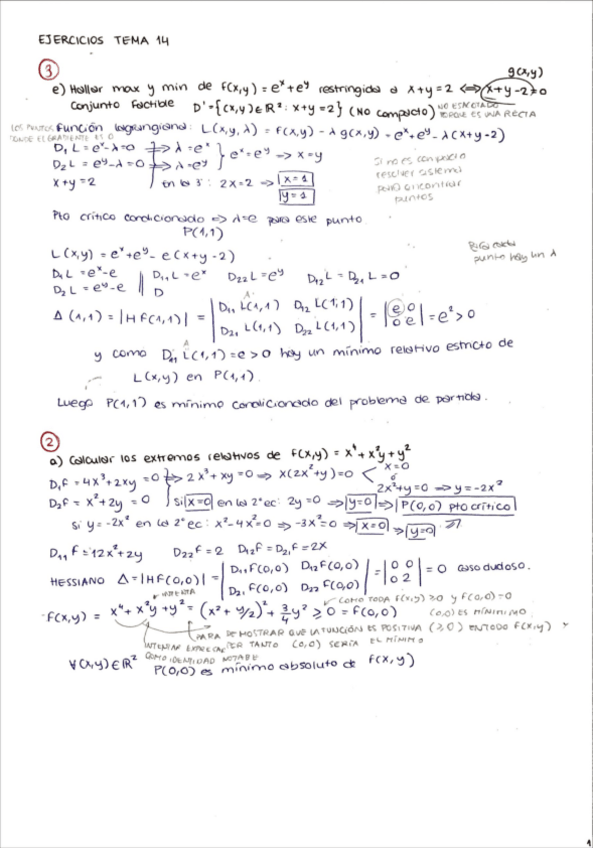 EJERCICIOS TEMA 14
③
g(x,y)
e) Hallar max y min de f(x,y) = eˣ + eʸ restringida a x+y=2 ⟺ x+y-2=0
Conjunto factible D' = {(x,y)∈ℝ²: x+y=2} (No compacto) NO ES ACOTADO PORQUE ES UNA RECTA
LOS PUNTOS DONDE EL GRADIENTE ES 0
Función lagrangiana: L(x,y,λ) = f(x,y) - λ g(x,y) = eˣ+eʸ - λ(x+y-2)
D₁L = eˣ-λ=0 ⟹ λ=eˣ
D₂L = eʸ-λ=0 ⟹ λ=eʸ } eˣ=eʸ ⟹ x=y
x+y=2 en la 3ª: 2x=2 ⟹ x=1
y=1
Si no es compacto
resolver sistema
para encontrar
puntos
Pto crítico condicionado ⟹ λ=e para este punto
P(1,1)
L(x,y) = eˣ+eʸ - e(x+y-2)
Para cada
punto hay un λ
D₁L = eˣ-e D₁₁L = eˣ D₂₂L = eʸ D₁₂L = D₂₁L = 0
D₂L = eʸ-e D
Δ(1,1) = |Hf(1,1)| = | D₁₁L(1,1) D₁₂L(1,1) | = | e 0 | = e² > 0
| D₂₁L(1,1) D₂₂L(1,1) | | 0 e |
y como D₁₁L(1,1)=e>0 hay un mínimo relativo estricto de
L(x,y) en P(1,1).
Luego P(1,1) es mínimo condicionado del problema de partida.
②
a) Calcular los extremos relativos de f(x,y) = x⁴+x²y+y²
D₁f = 4x³+2xy=0 ⟹ 2x³+xy=0 ⟹ x(2x²+y)=0 x=0
ó
2x²+y=0 ⟹ y=-2x²
D₂f = x²+2y=0 Si x=0 en la 2ªec: 2y=0 ⟹ y=0 ⟹ P(0,0) pto crítico
si y=-2x² en la 2ªec: x²-4x²=0 ⟹ -3x²=0 ⟹ x=0 ⟹ y=0
D₁₁f = 12x²+2y D₂₂f = 2 D₁₂f = D₂₁f = 2x
HESSIANO Δ=|Hf(0,0)| = | D₁₁f(0,0) D₁₂f(0,0) | = | 0 0 | = 0 caso dudoso.
| D₂₁f(0,0) D₂₂f(0,0) | | 0 2 |
COMO TODA f(x,y) ≥0 y f(0,0)=0
f(x,y) = x⁴+x²y+y² = (x²+y/2)² + ¾y² ≥ 0 = f(0,0) (0,0) ES MÍNIMO
PARA DEMOSTRAR QUE LA FUNCIÓN ES POSITIVA (≥0) EN TODO f(x,y) y
POR TANTO (0,0) SERÍA EL MÍNIMO
COMO IDENTIDAD NOTABLE
∀(x,y)∈ℝ² P(0,0) es mínimo absoluto de f(x,y)
1